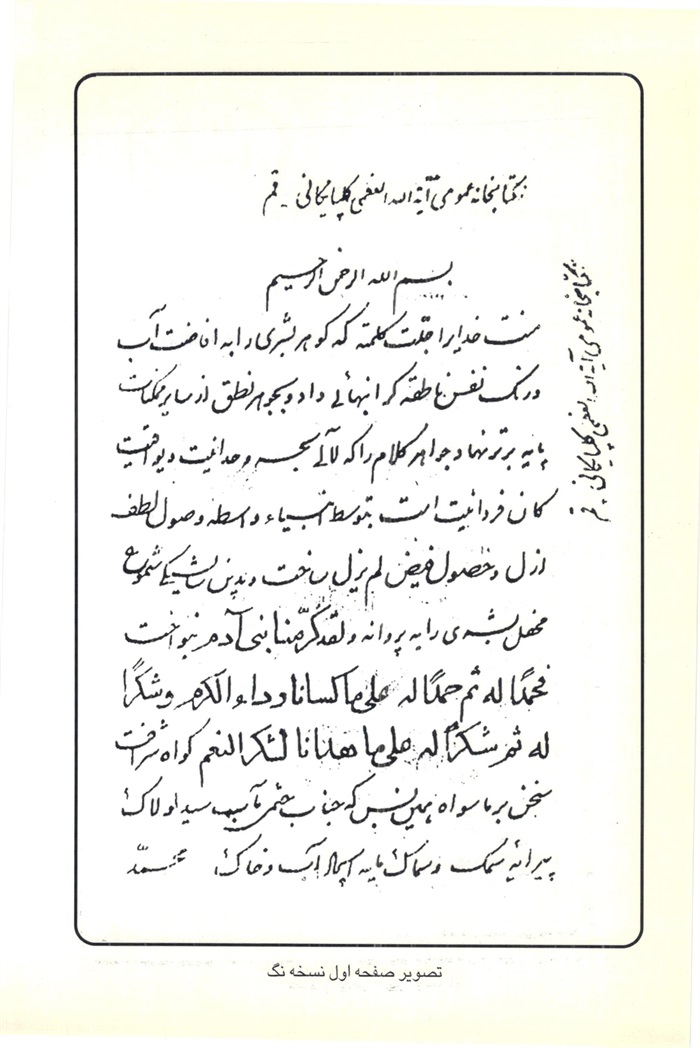 کتابخانه عمومی آیة الله العظمی گلپایگانی - قم
بسم الله الرحمن الرحیم
منت خدایرا جلّت کلمته که گوهر بشری را به افاضت آب
و رنگ نفس ناطقه گرانبهائی داد و بجوهر نطق از سایر ممکنات
پایه برتر نهاد و جواهر کلام را که لآلی وحدانیت و یواقیت
کان فردانیت است بتوسط انبیاء واسطه وصول لطف
ازل و حصول فیض لم یزل ساخت و بدین شموع
محفل بشری را به پروانه و لقد کرّمنا بنی آدم بنواخت
فحمدًا له ثم حمدًا له علی ما کسانا رداء الکرم و شکرًا
له ثم شکرًا له علی ما هدانا لشکر النعم گواه شرافت
سخن بر ماسواه همین بس که جناب ختمی مآب سید لولاک
پیرایۀ سمک و سماک مایه آب و خاک محمّد
کتابخانه عمومی آیة الله العظمی گلپایگانی - قم
تصویر صفحه اول نسخه نگ